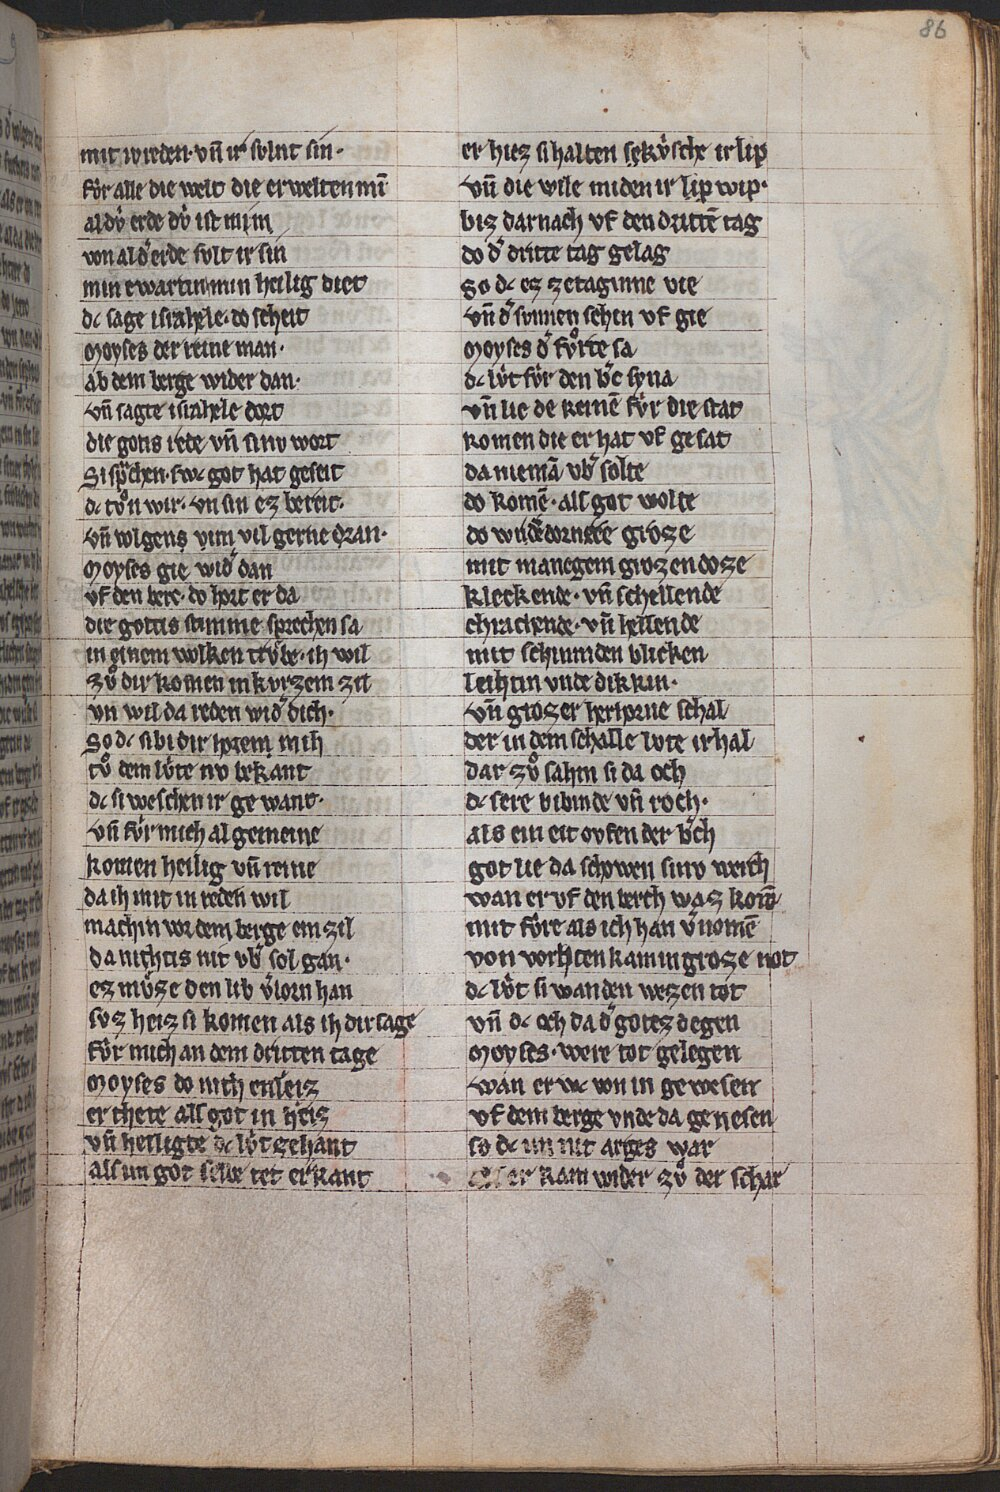 86
mit wireden· vn̄ ir svlnt sin·
fv̊r alle die welt die erwelten mī
al dv̊ erde dv̊ ist min
von al d͛ erde svlt ir sin
min ewartin min heilig diet
dc sage israhele· do scheit
Moyses der reine man·
ab dem berge wider dan·
vn̄ sagte israhele dort
die gotis rede vn̄ sinv wort
Si sp͛chen· swc got hat geseit
dc tv̊n wir· vn sin ez bereit·
vn̄ volgens vim vil gerne dran·
Moyses gie wid͛ dan
vf den berc· do hort er da
die gottis stimme sprechen sa
in einem wolken trv̊be· ih wil
zv̊ dir komen in kvrzem zil
vn wil da reden wid͛ dich·
So dc si bi dir horem mih
tv̊ dem lv̊te nv bekant
dc si weschen ir ge want·
vn̄ fv̊r mich al gemeine
komen heilig vn̄ reine
da ih mit in reden wil
mach in vor dem berge ein zil
da nihtis nit vb͛ sol gan·
ez mv̊ze den lib v͛lorn han
svz heiz si komen als ih dir sage
fv̊r mich an dem dritten tage
Moyses do nith enleiz
er thete alf got in heiz
vn̄ heiligte dc lv̊t zehant
alf im got selbe tet erkant
er hiez si halten se kv̊sche ir lip
vn̄ die wile miden ir lip wip·
biz darnach vf den drittē tag
do d͛ dritte tag gelag
So dc ez ze taginne vie
vn̄ d͛ svnnen schin vf gie
Moyses d͛ fv̊rte sa
dc lv̊t fv̊r den b͛c syna
vn̄ lie de keinē fv̊r die stat
komen die er hat vf gesat
da niemā vb͛ solte
do komē· alf got wolte
do wnd͛ dornslee groze
mit manegem grozen doze
kleckende· vn̄ schellende
chrachende· vn̄ hellende
mit schinnden blicken
leihtin vnde dikkin·
vn̄ grozer herhorne schal
der in dem schalle lvte irhal
dar zv̊ sahin si da och
dc sere bibinde vn̄ roch·
als ein eit ovfen der b͛ch
got lie da schowen sinv werch
wan er vf den berch waz komē
mit fv̊re als ich han v͛nomē
von vorhten kam in groze not
dc lv̊t si wanden wezen tot
vn̄ dc och da d͛ gotez degen
Moyses· were tot gelegen
wan er wc von in gewesen
vf dem berge vnde da genesen
so dc im nit arges war
er kam wider zv̊ der schar